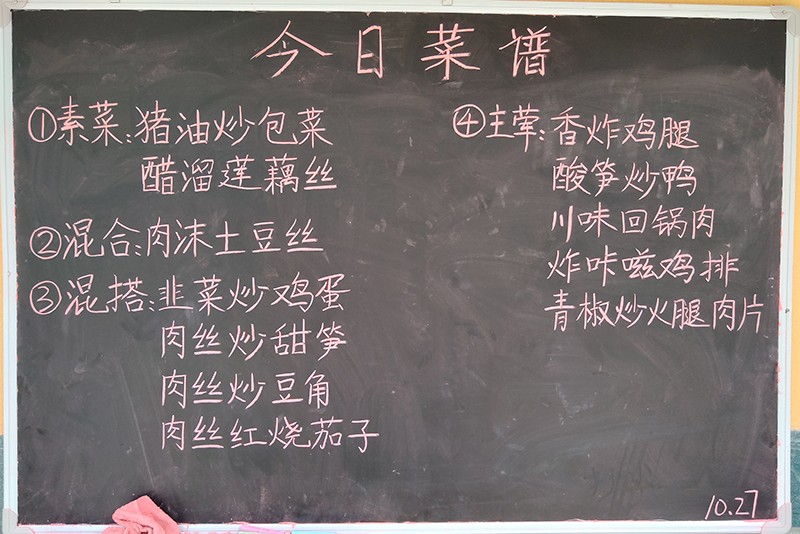 今日菜谱
①素菜:猪油炒包菜
醋溜莲藕丝
②混合:肉沫土豆丝
③混搭:韭菜炒鸡蛋
肉丝炒甜笋
肉丝炒豆角
肉丝红烧茄子
④主荤:香炸鸡腿
酸笋炒鸭
川味回锅肉
炸咔嗞鸡排
青椒炒火腿肉片
10.27